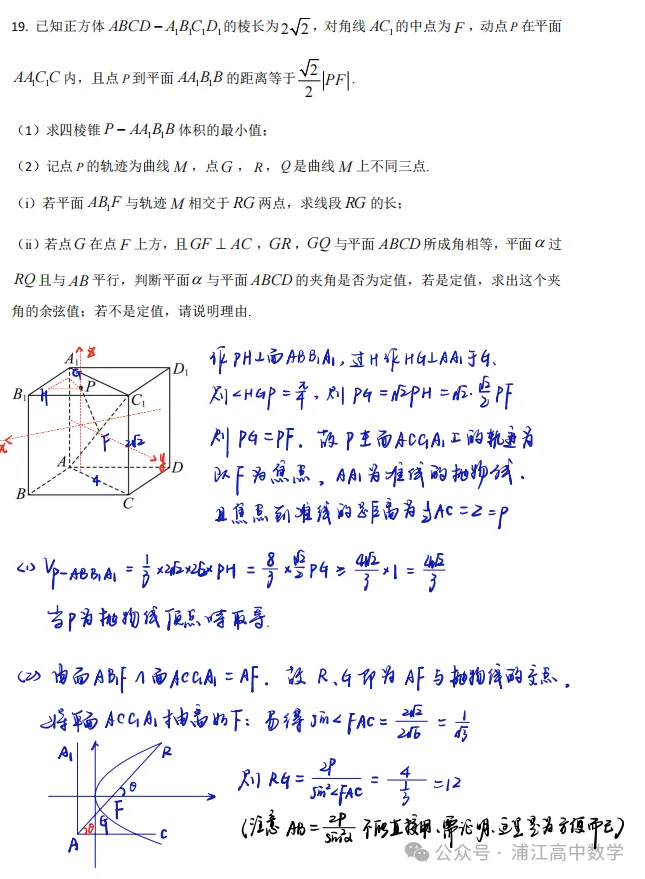 19. 已知正方体 ABCD − A₁B₁C₁D₁ 的棱长为 2√2，对角线 AC₁ 的中点为 F，动点 P 在平面
AA₁C₁C 内，且点 P 到平面 AA₁B₁B 的距离等于 √2/2 |PF|.
（1）求四棱锥 P − AA₁B₁B 体积的最小值；
（2）记点 P 的轨迹为曲线 M，点 G，R，Q 是曲线 M 上不同三点.
（i）若平面 AB₁F 与轨迹 M 相交于 RG 两点，求线段 RG 的长；
（ii）若点 G 在点 F 上方，且 GF ⊥ AC，GR，GQ 与平面 ABCD 所成角相等，平面 α 过
RQ 且与 AB 平行，判断平面 α 与平面 ABCD 的夹角是否为定值，若是定值，求出这个夹
角的余弦值；若不是定值，请说明理由.
A₁ z D₁
G
H P
B₁ C₁
F 2√2
x
A y D
4
B C
作PH⊥面ABB₁A₁，过H作HG⊥AA₁于G.
则∠HGP = π/4，则 PG = √2PH = √2·√2/2 PF
则PG = PF. 故P在面ACC₁A₁上的轨迹为
以F为焦点，AA₁为准线的抛物线.
且焦点到准线的距离为½AC = 2 = p
(1) V_{P-ABB₁A₁} = 1/3 × 2√2 × 2√2 × PH = 8/3 × √2/2 PG ≥ 4√2/3 × 1 = 4√2/3
当P为抛物线顶点时取等.
(2) 由面AB₁F ∩ 面ACC₁A₁ = AF. 故 R、G 即为 AF 与抛物线的交点.
将平面ACC₁A₁抽离如下：易得 sin∠FAC = 2√2/2√6 = 1/√3
A₁ R
θ
F
G
A θ C
则 RG = 2p/sin²∠FAC = 4/(1/3) = 12
(注意 AB = 2p/sin²α 不能直接用，需证明，这里是为方便而已)
公众号 · 浦江高中数学